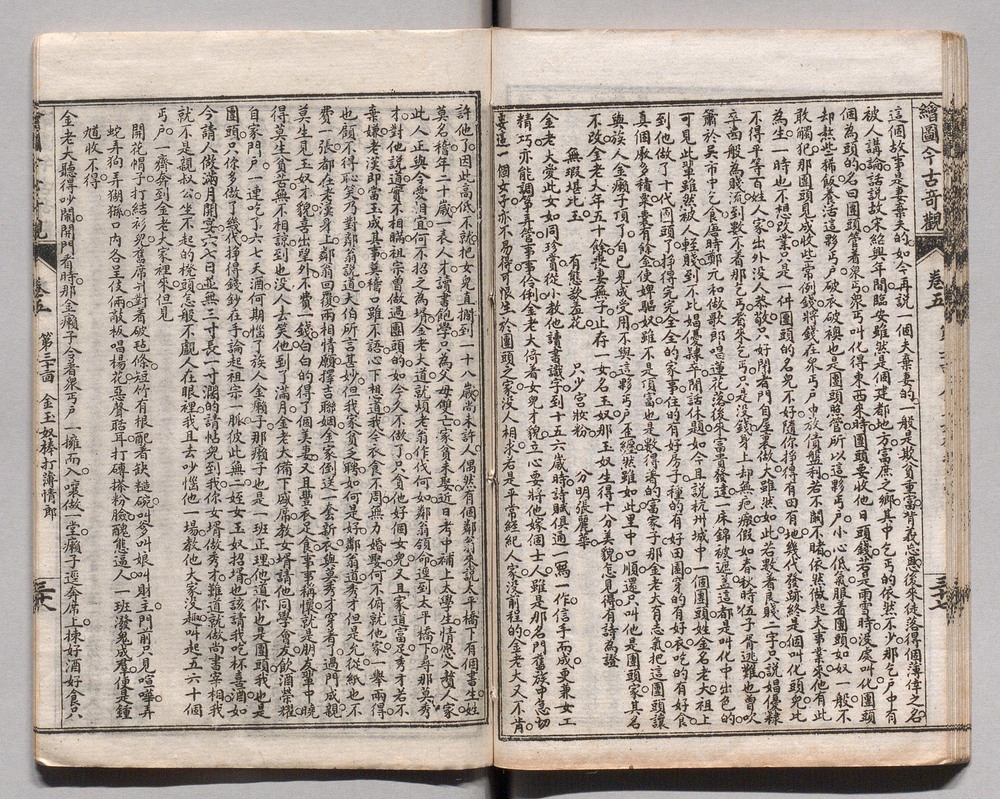 繪圖今古奇觀 卷五
這個故事是妻棄夫的如今再說一個夫棄妻的一般是欺貧重富背義忘恩後來徒落得個薄倖之名
被人講論話說故宋紹興年間臨安雖然是個建都地方富庶之鄉其中乞丐的依然不少那乞丐中有
個為頭的名曰團頭管着衆丐衆丐叫化得東西來時團頭要收他日頭錢若是雨雪時沒處叫化團頭
却熬些稀飯養活這夥丐戶破衣破襖也是團頭照管所以這夥丐戶小心低氣服着團頭如奴一般不
敢觸犯那團頭見成收些常例錢將錢在衆丐戶中放債盤利若不闞不賭依然做起大事業來他有此
為生一時也不想改業只是一件團頭的名兒不好隨你掙得有田有地幾代發跡終是個叫化頭兒比
不得平等百姓人家出外沒人恭敬只好閉着門自屋裏做大雖然如此若數着良賤二字只說娼優隸
卒四般為賤流到數不着那乞丐看來乞丐只是沒錢身上却無疤瘢假如春秋時伍子胥逃難也曾吹
簫於吳市中乞食唐時鄭元和做歌郎唱蓮花落後來富貴發達一床錦被遮蓋這都是叫化中出色的
可見此輩雖然被人輕賤到不比娼優隸卒閒話休題如今且說杭州城中一個團頭姓金名老大祖上
到他做了七代團頭了掙得完完全全的家事住的有好房子種的有好田園穿的有好衣吃的有好食
真個廒多積粟囊有餘金使婢驅奴雖不是頂富也是數得着的富家了那金老大有志氣把這團頭讓
與族人金癩子頂了自己見成受用不與這夥丐戶歪纏然雖如此里中口順還只叫他是團頭家其名
不改金老大年五十餘喪妻無子止存一女名玉奴那玉奴生得十分美貌怎見得有詩為證
無瑕堪比玉 有態欲羞花 只少宮妝粉 分明張麗華
金老大愛此女如同珍寶從小教他讀書識字到十五六歲時詩賦俱通一寫一作信手而成更兼女工
精巧亦能調箏弄管事事伶俐金老大倚着女兒才貌立心要將他嫁個士人雖是那名門舊族中急切
要這一個女子亦不易得可恨生於團頭之家沒人相求若是平常經紀人家沒前程的金老大又不肯
許他了因此高低不就把女兒直捱到一十八歲尚未許人偶然有個鄰翁來說太平橋下有個書生姓
莫名稽年二十歲一表人才讀書飽學只為父母雙亡家貧未娶近日考中補上太學生情愿入贅人家
此人正與令愛相宜何不招之為壻金老大道就煩老翁作伐何如鄰翁領命逕到太平橋下尋那莫秀
才對他說道實不相瞞祖宗曾做過團頭的如今久不做了只貪他好個女兒又且家道富足秀才若不
棄嫌老漢即當玉成其事莫稽口雖不語心下想道我今衣食不周無力婚娶何不俯就他家一舉兩得
也顧不得恥笑乃對鄰翁說道大伯所言甚妙但我家貧乏聘如何是好鄰翁道秀才但是允從紙也不
費一張都在老漢身上鄰翁回覆兩相情願擇吉聯姻金家倒送一套新衣與莫秀才穿着了過門成親
莫生見玉奴才貌喜出望外不費一錢白白的得了個美妻又且豐衣足食事事稱懷就是朋友輩中曉
得莫生貧苦無不相諒到也沒人去笑他到了滿月金老大備下盛席教女壻請他同學會友飲酒榮耀
自家門戶一連吃了六七天酒何期惱了族人金癩子那癩子也是一班正理他道你也是團頭我也是
團頭只你多做了幾代掙得錢鈔在手論起祖宗一脈彼此無二姪女玉奴招壻也該請我吃杯喜酒如
今請人做滿月開宴六七日並無三寸長一寸濶的請帖兒到我你女壻做秀才難道就做尚書宰相我
就不是親叔公坐不起的櫈頭怎般不覷人在眼裡我且去吵惱他一場教他大家沒趣叫起五六十個
丐戶一齊奔到金老大家裡來但見
開花帽子打結衫兒舊席片對着破毡條短竹有根配着缺糙碗叫爹叫娘叫財主門前只見喧嘩弄
蛇弄狗弄猢猻口內各呈伎倆敲板唱楊花惡聲聒耳打磚搽粉臉醜態逼人一班潑鬼成羣便是鍾
馗收不得
金老大聽得吵鬧開門看時那金癩子令着衆丐戶一擁而入嚷做一堂癩子逕奔席上揀好酒好食只
卷五 第三十二回 金玉奴棒打薄情郎